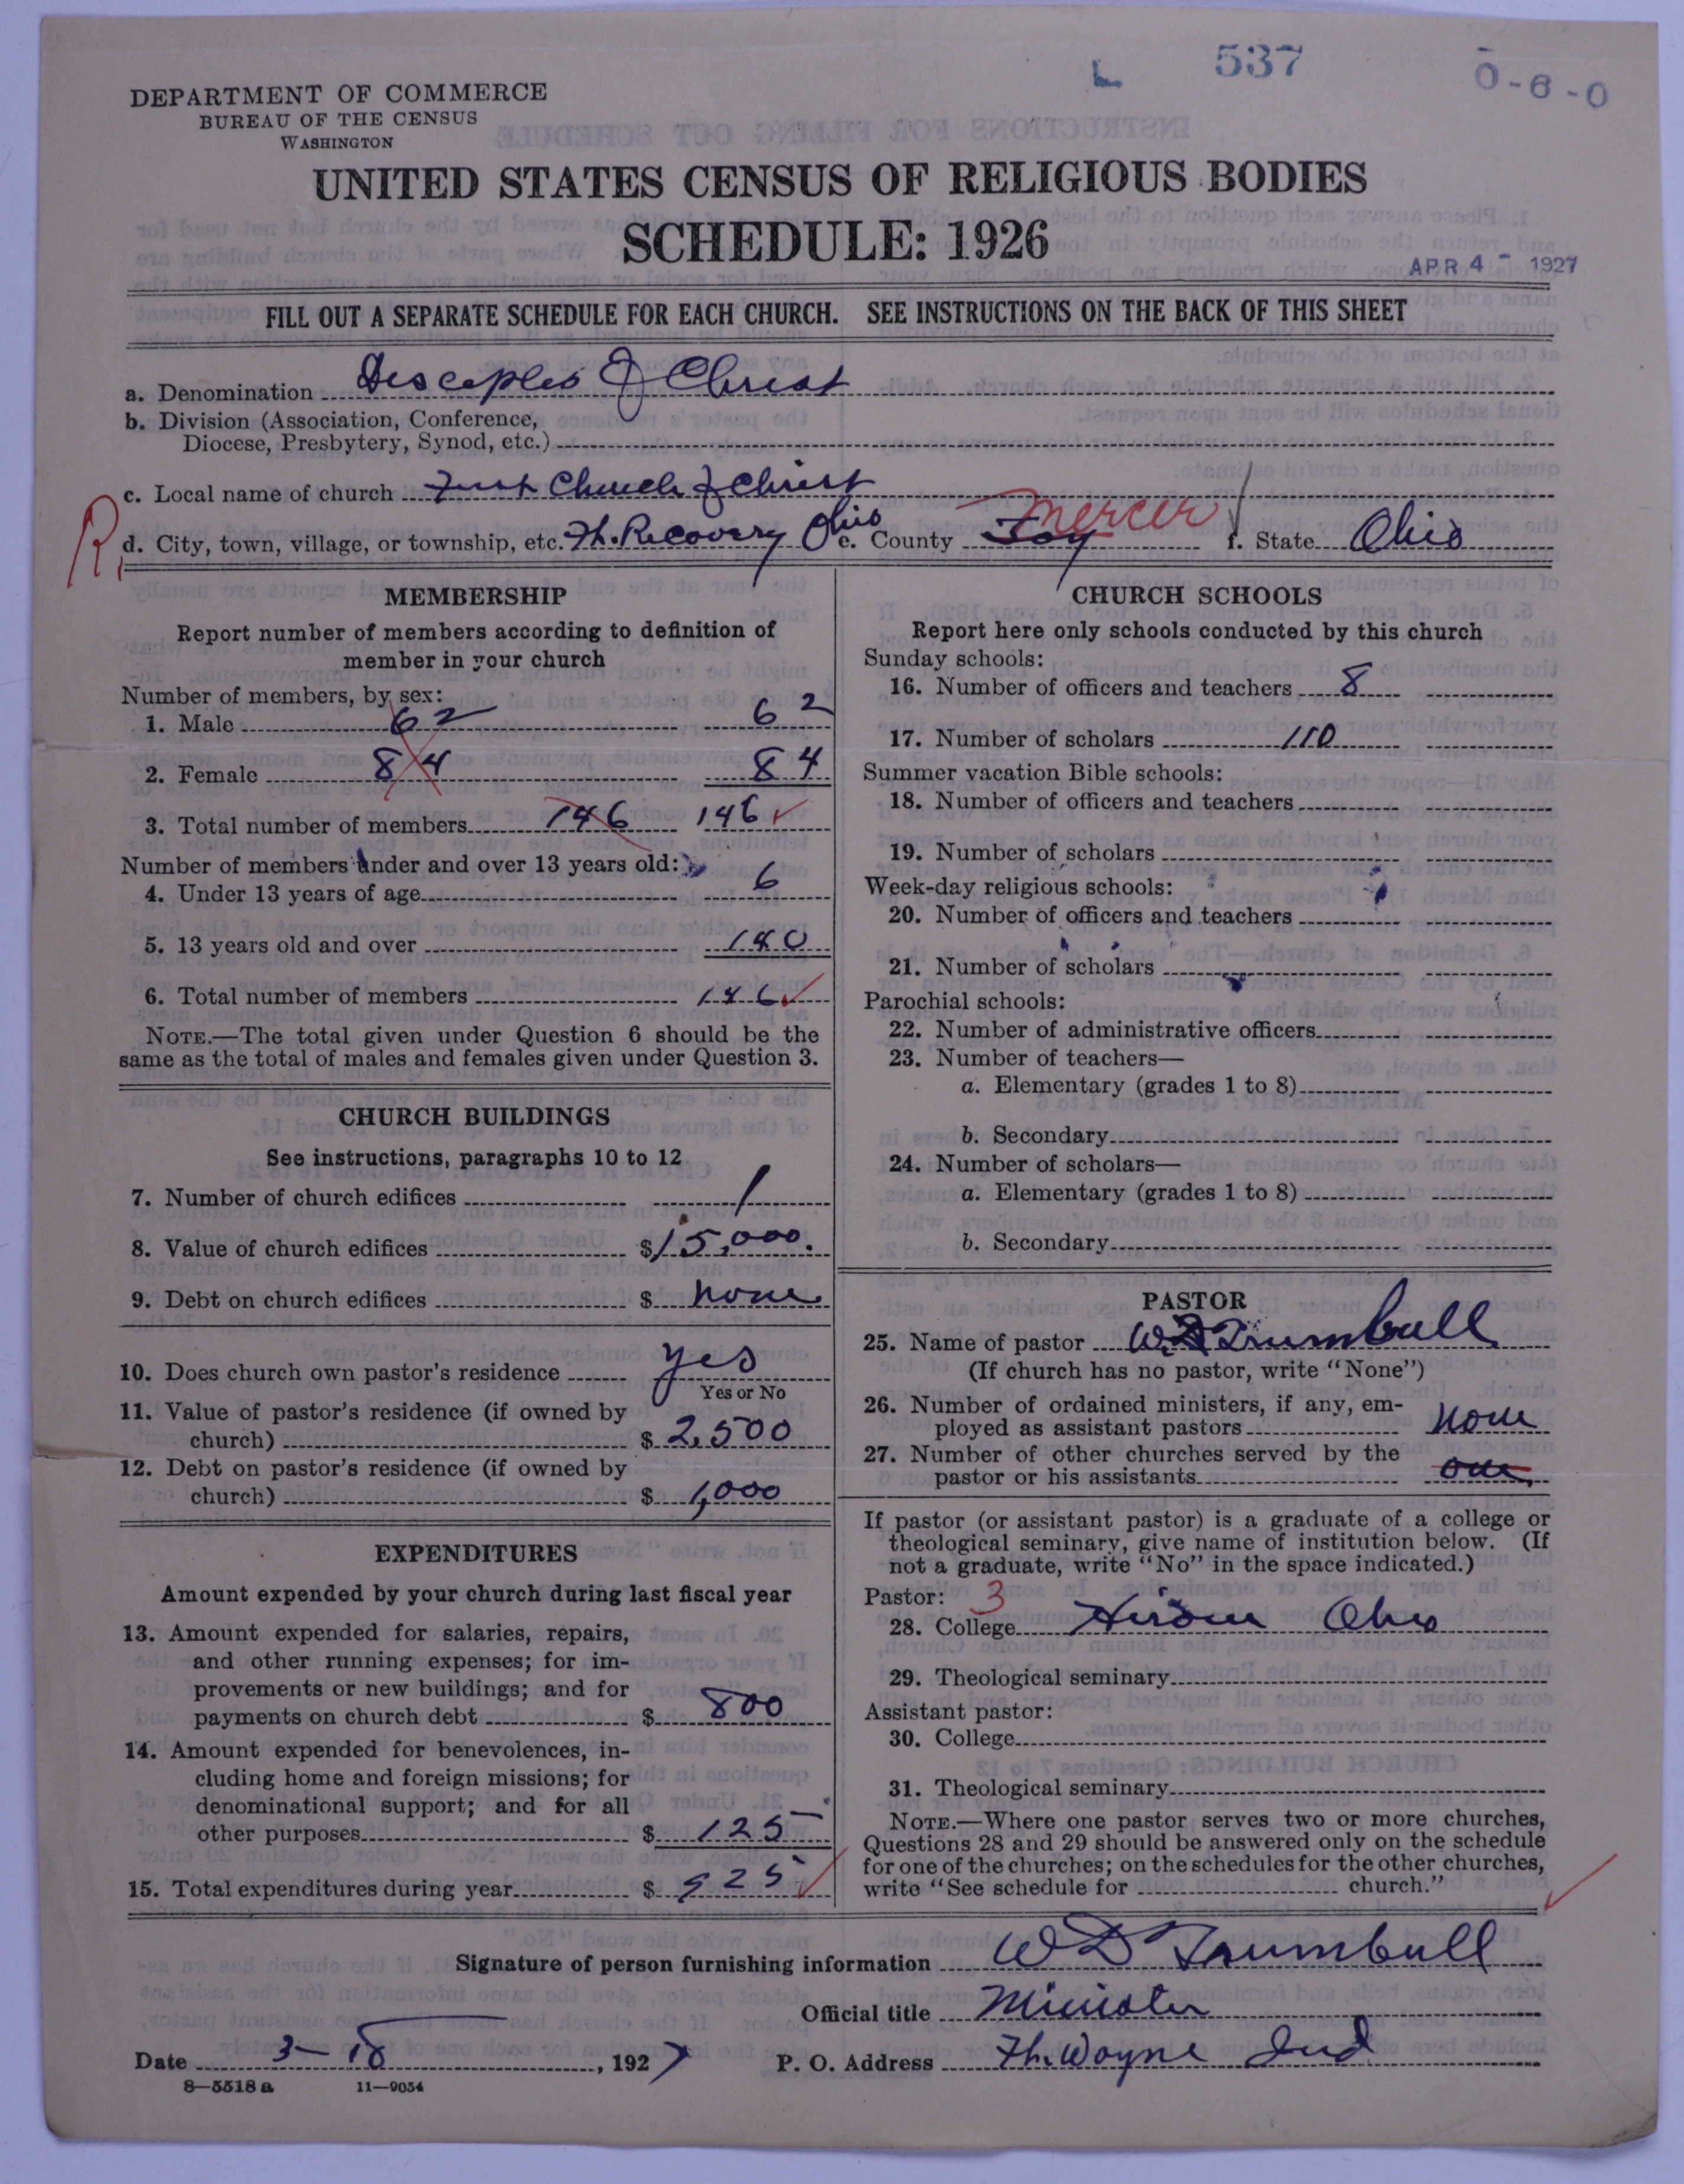 L 537 0-6-0
DEPARTMENT OF COMMERCE
BUREAU OF THE CENSUS
WASHINGTON
UNITED STATES CENSUS OF RELIGIOUS BODIES
SCHEDULE: 1926
APR 4 - 1927
FILL OUT A SEPARATE SCHEDULE FOR EACH CHURCH. SEE INSTRUCTIONS ON THE BACK OF THIS SHEET
a. Denomination Disciples of Christ
b. Division (Association, Conference,
Diocese, Presbytery, Synod, etc.)
c. Local name of church First Church of Christ
R, d. City, town, village, or township, etc. Ft. Recovery Ohio e. County Joy Mercer f. State Ohio
MEMBERSHIP
Report number of members according to definition of
member in your church
Number of members, by sex:
1. Male 62 62
2. Female 84 84
3. Total number of members 146 146 ✓
Number of members under and over 13 years old:
4. Under 13 years of age 6
5. 13 years old and over 140
6. Total number of members 146 ✓
NOTE.—The total given under Question 6 should be the
same as the total of males and females given under Question 3.
CHURCH BUILDINGS
See instructions, paragraphs 10 to 12
7. Number of church edifices 1
8. Value of church edifices $15,000.
9. Debt on church edifices $ none
10. Does church own pastor's residence yes
Yes or No
11. Value of pastor's residence (if owned by
church) $ 2,500
12. Debt on pastor's residence (if owned by
church) $ 1,000
EXPENDITURES
Amount expended by your church during last fiscal year
13. Amount expended for salaries, repairs,
and other running expenses; for im-
provements or new buildings; and for
payments on church debt $ 800
14. Amount expended for benevolences, in-
cluding home and foreign missions; for
denominational support; and for all
other purposes $ 125
15. Total expenditures during year $ 925 ✓
CHURCH SCHOOLS
Report here only schools conducted by this church
Sunday schools:
16. Number of officers and teachers 8
17. Number of scholars 110
Summer vacation Bible schools:
18. Number of officers and teachers
19. Number of scholars
Week-day religious schools:
20. Number of officers and teachers
21. Number of scholars
Parochial schools:
22. Number of administrative officers
23. Number of teachers—
a. Elementary (grades 1 to 8)
b. Secondary
24. Number of scholars—
a. Elementary (grades 1 to 8)
b. Secondary
PASTOR
25. Name of pastor W. D Trumbull
(If church has no pastor, write "None")
26. Number of ordained ministers, if any, em-
ployed as assistant pastors None
27. Number of other churches served by the
pastor or his assistants one
If pastor (or assistant pastor) is a graduate of a college or
theological seminary, give name of institution below. (If
not a graduate, write "No" in the space indicated.)
Pastor: 3
28. College Hiram Ohio
29. Theological seminary
Assistant pastor:
30. College
31. Theological seminary
NOTE.—Where one pastor serves two or more churches,
Questions 28 and 29 should be answered only on the schedule
for one of the churches; on the schedules for the other churches,
write "See schedule for church."
Signature of person furnishing information W D Trumbull
Official title Minister
Date 3-18, 1927 P. O. Address Ft. Wayne Ind
8—5518 a 11—9054